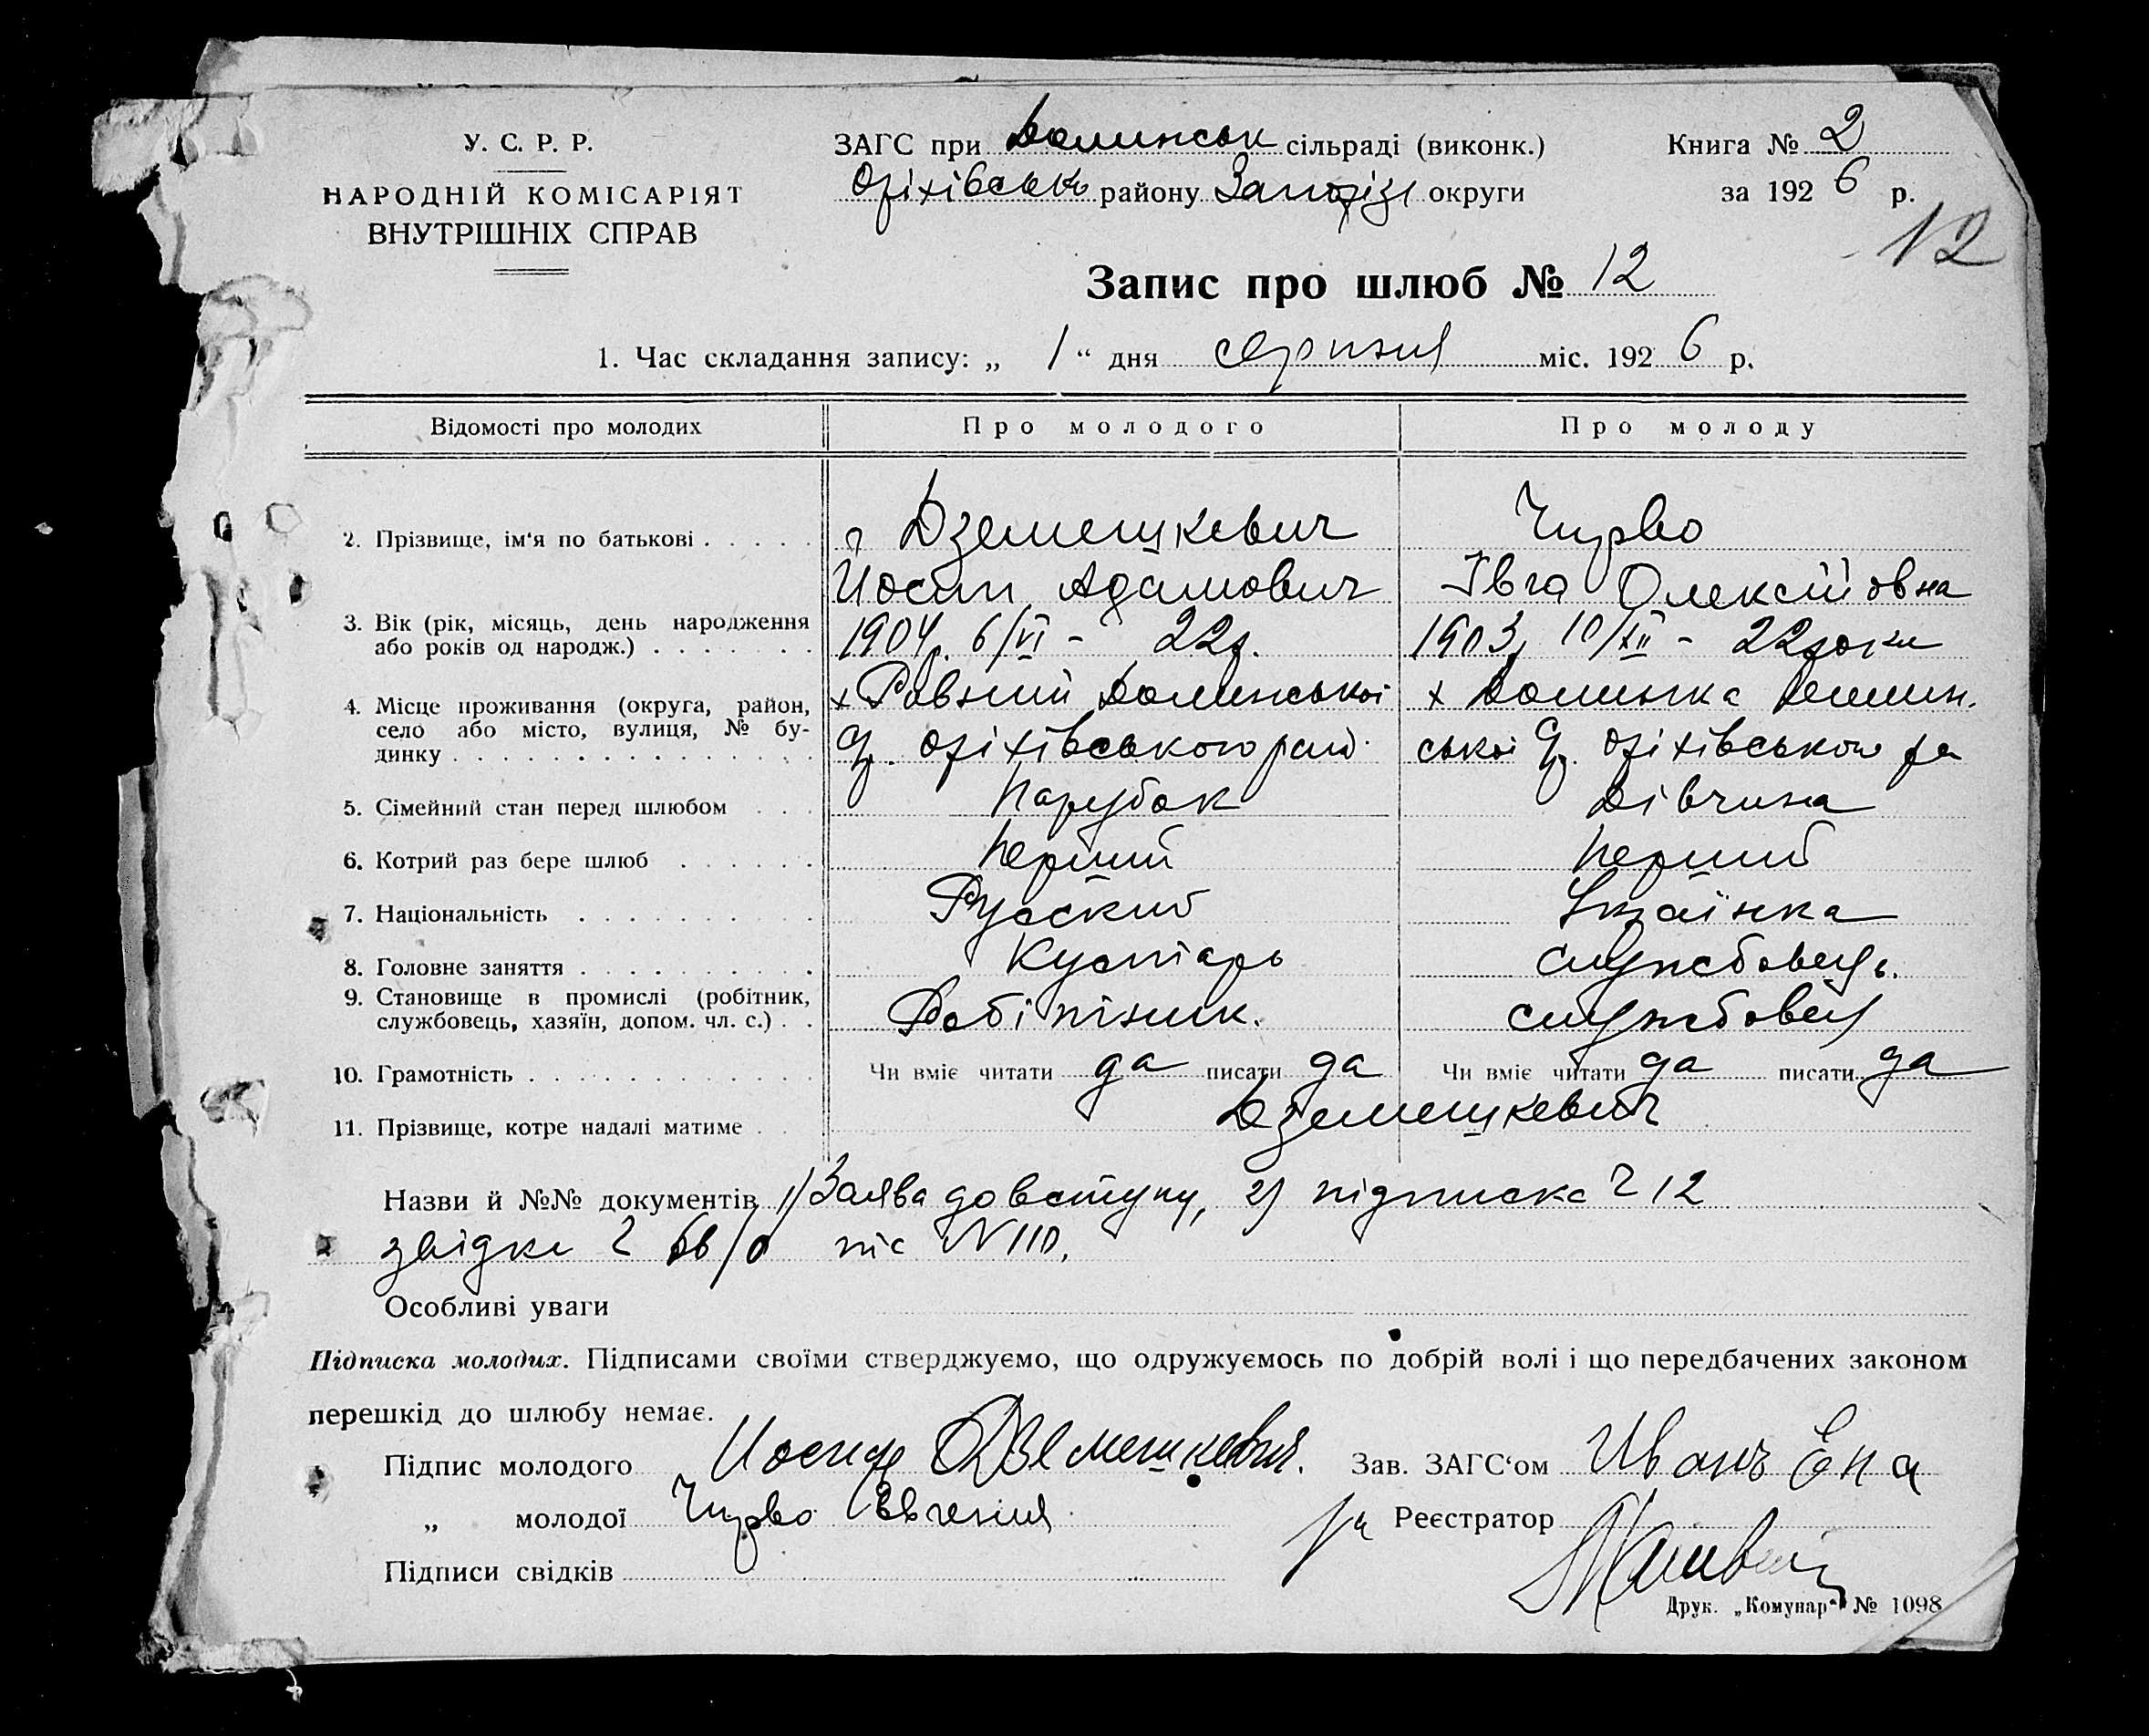 У. С. Р. Р.
НАРОДНІЙ КОМІСАРІЯТ
ВНУТРІШНІХ СПРАВ
ЗАГС при Долинськ сільраді (виконк.)
Оріхівськ району Запоріз округи
Книга № 2
за 1926 р.
12
Запис про шлюб № 12
1. Час складання запису: „ 1 “ дня серпня міс. 1926 р.
Відомості про молодих Про молодого Про молоду
2. Прізвище, ім'я по батькові Дземешкевич Чирво
Йосип Адамович Івга Олексіївна
3. Вік (рік, місяць, день народження
або років од народж.) 1904р. 6/VI - 22р. 1903, 10/XII - 22 роки
4. Місце проживання (округа, район,
село або місто, вулиця, № бу-
динку х Рівний Долинської х Долинка Долин.
Оріхівського рай. ської Оріхівського ра
5. Сімейний стан перед шлюбом Парубок Дівчина
6. Котрий раз бере шлюб Перший Перший
7. Національність Русский Українка
8. Головне заняття Кустарь службовець.
9. Становище в промислі (робітник,
службовець, хазяїн, допом. чл. с.) Робітник. службовец
10. Грамотність Чи вміє читати да писати да Чи вміє читати да писати да
11. Прізвище, котре надалі матиме Дземешкевич
Назви й №№ документів 1) Заява до вступу, 2) підписка Ч 12
звідки Ч N 110.
Особливі уваги
Підписка молодих. Підписами своїми стверджуємо, що одружуємось по добрій волі і що передбачених законом
перешкід до шлюбу немає.
Підпис молодого Иосиф Дземешкевич. Зав. ЗАГС'ом Иванъ Ена
„ молодої Чирво Евгения Реєстратор
Підписи свідків
Друк. „Комунар“ № 1098